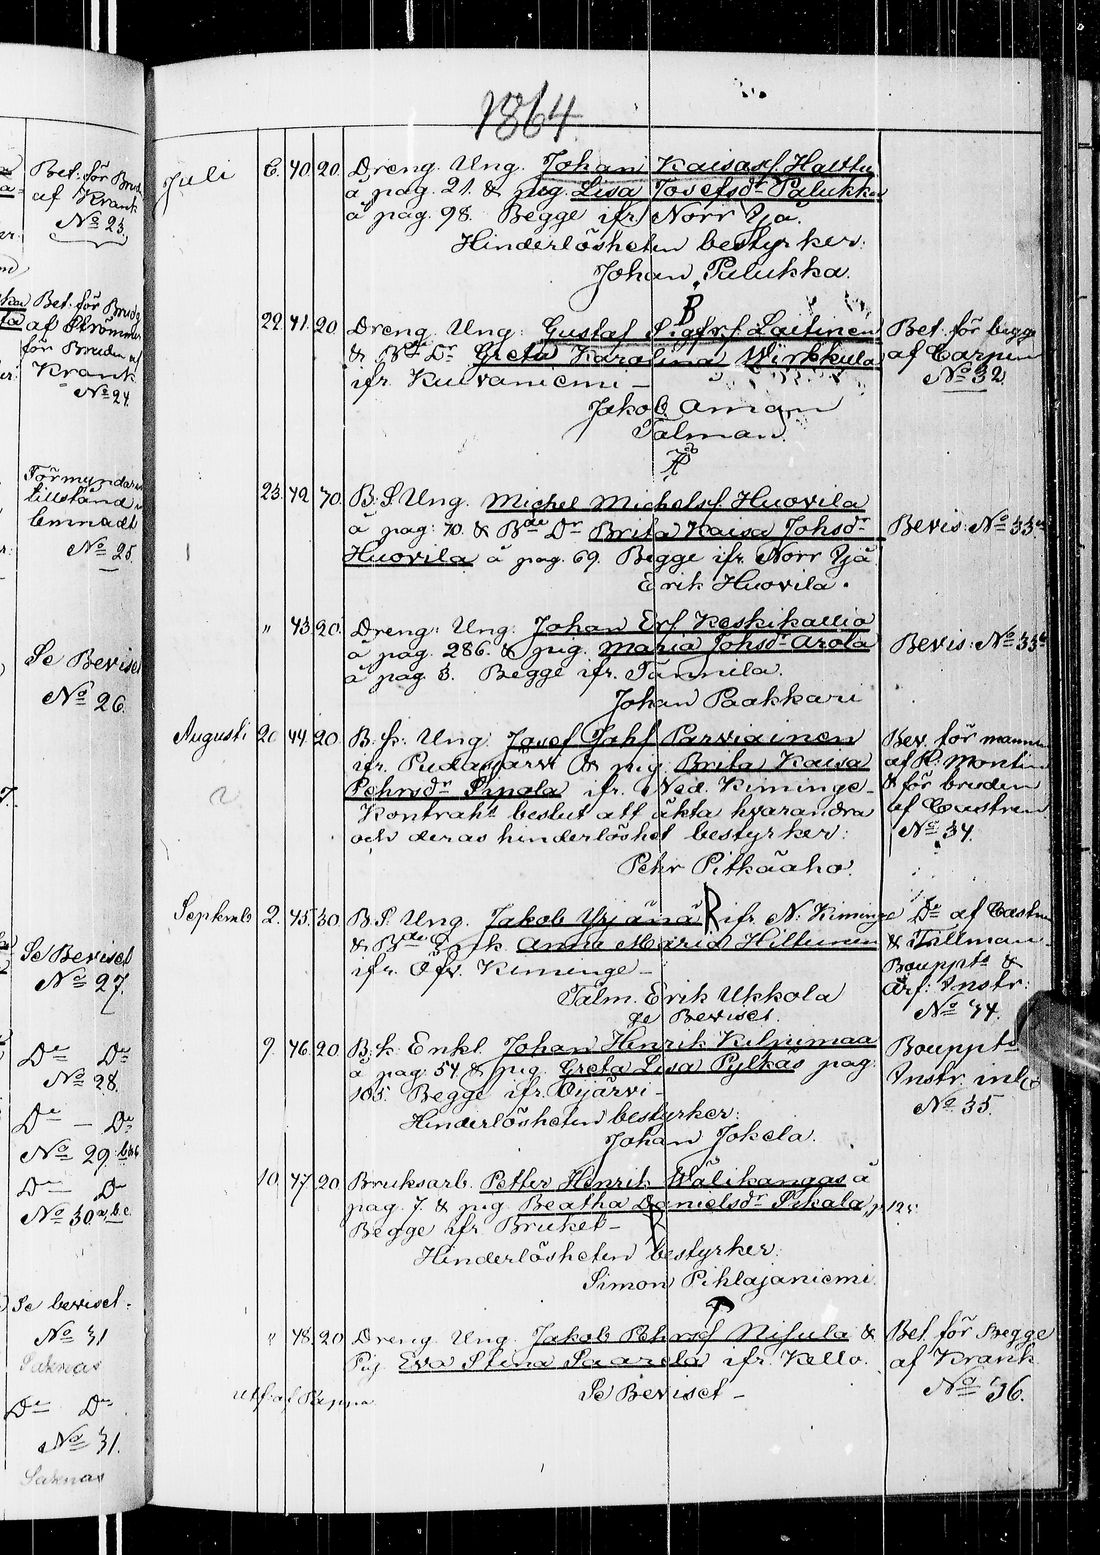 1864
Bet. för Brud
af Krank
No 23.
Bet. för Brud
af Strömmer
för Bruden af
Krank
No 24.
Förmyndare
tillstånd
lemnadt
No 25.
Se Beviset
No 26.
Se Beviset
No 27.
Do Do
No 28.
Do — Do
No 29.
Do — Do
No 30 a, b, c.
Se beviset.
No 31
Saknas
Do Do
No 31.
Saknas
Juli 6. 40. 20. Dreng. Ung. Johan Kaisasf. Halttu
å pag. 21. & pig. Lisa Josefsdr Palukka
å pag. 98. Begge ifr. Norr Yjä.
Hinderlösheten bestyrker:
Johan Palukka.
B
22. 41. 20 Dreng. Ung: Gustaf Sigfrf. Laitinen Bet. för begge
& Bde Dr Greta Karolina Wirkkula af Carpen
ifr. Kuivaniemi — No 32.
Jakob Aman
Talman.
23. 42 70. B. S. Ung. Michel Michelsf. Huovila
å pag. 70. & Bde Dr Brita Kaisa Johsdr Bevis. No 33.a
Huovila å pag. 69. Begge ifr. Norr Yjä
Erik Huovila.
" 43. 20. Dreng: Ung. Johan Erf. Keskikallio
å pag. 286. & pig. Maria Johsdr Arola Bevis. No 33b
å pag. 3. Begge ifr. Tannila.
Johan Paakkari
Augusti 20 44 20. B. k. Ung. Josef Johf. Parviainen Bev. för mannen
ifr. Pudasjärvi & pig. Brita Kaisa af H. Montin
Pehrsdr Sipola ifr. Ned. Kiminge — & för bruden
Kontraht beslut att äkta hvarandra af Castren
och deras hinderlöshet bestyrker: No 34.
Pehr Pitkäaho.
Septemb 2. 45. 30 B. S. Ung. Jakob Yrjänä ifr. N. Kiminge Do af Castren
& Bde Enk. Anna Maria Hiltunen & Tallman
ifr. Öfv. Kiminge — Bouppts &
Talm. Erik Ukkola Arf: Instr:
se Beviset. No 34.
9. 46. 20 B. k. Enkl. Johan Henrik Kilpimaa Bouppts
å pag. 54 & pig. Greta Lisa Pylkäs pag. Instr. inl.
105. Begge ifr. Oijärvi — No 35.
Hinderlösheten bestyrker:
Johan Jokela.
10. 47. 20 Bruksarb. Petter Henrik Wälikangas å
pag. 7. & pig. Beatha Danielsdr Sikala, p. 125.
Begge ifr. Bruket —
Hinderlösheten bestyrker:
Simon Pihlajaniemi.
" 48. 20 Dreng. Ung. Jakob Pehrsf. Nisula & Bet. för Begge
Pig. Eva Stina Saarela ifr. Kello. af Krank
Se Beviset — No 36.